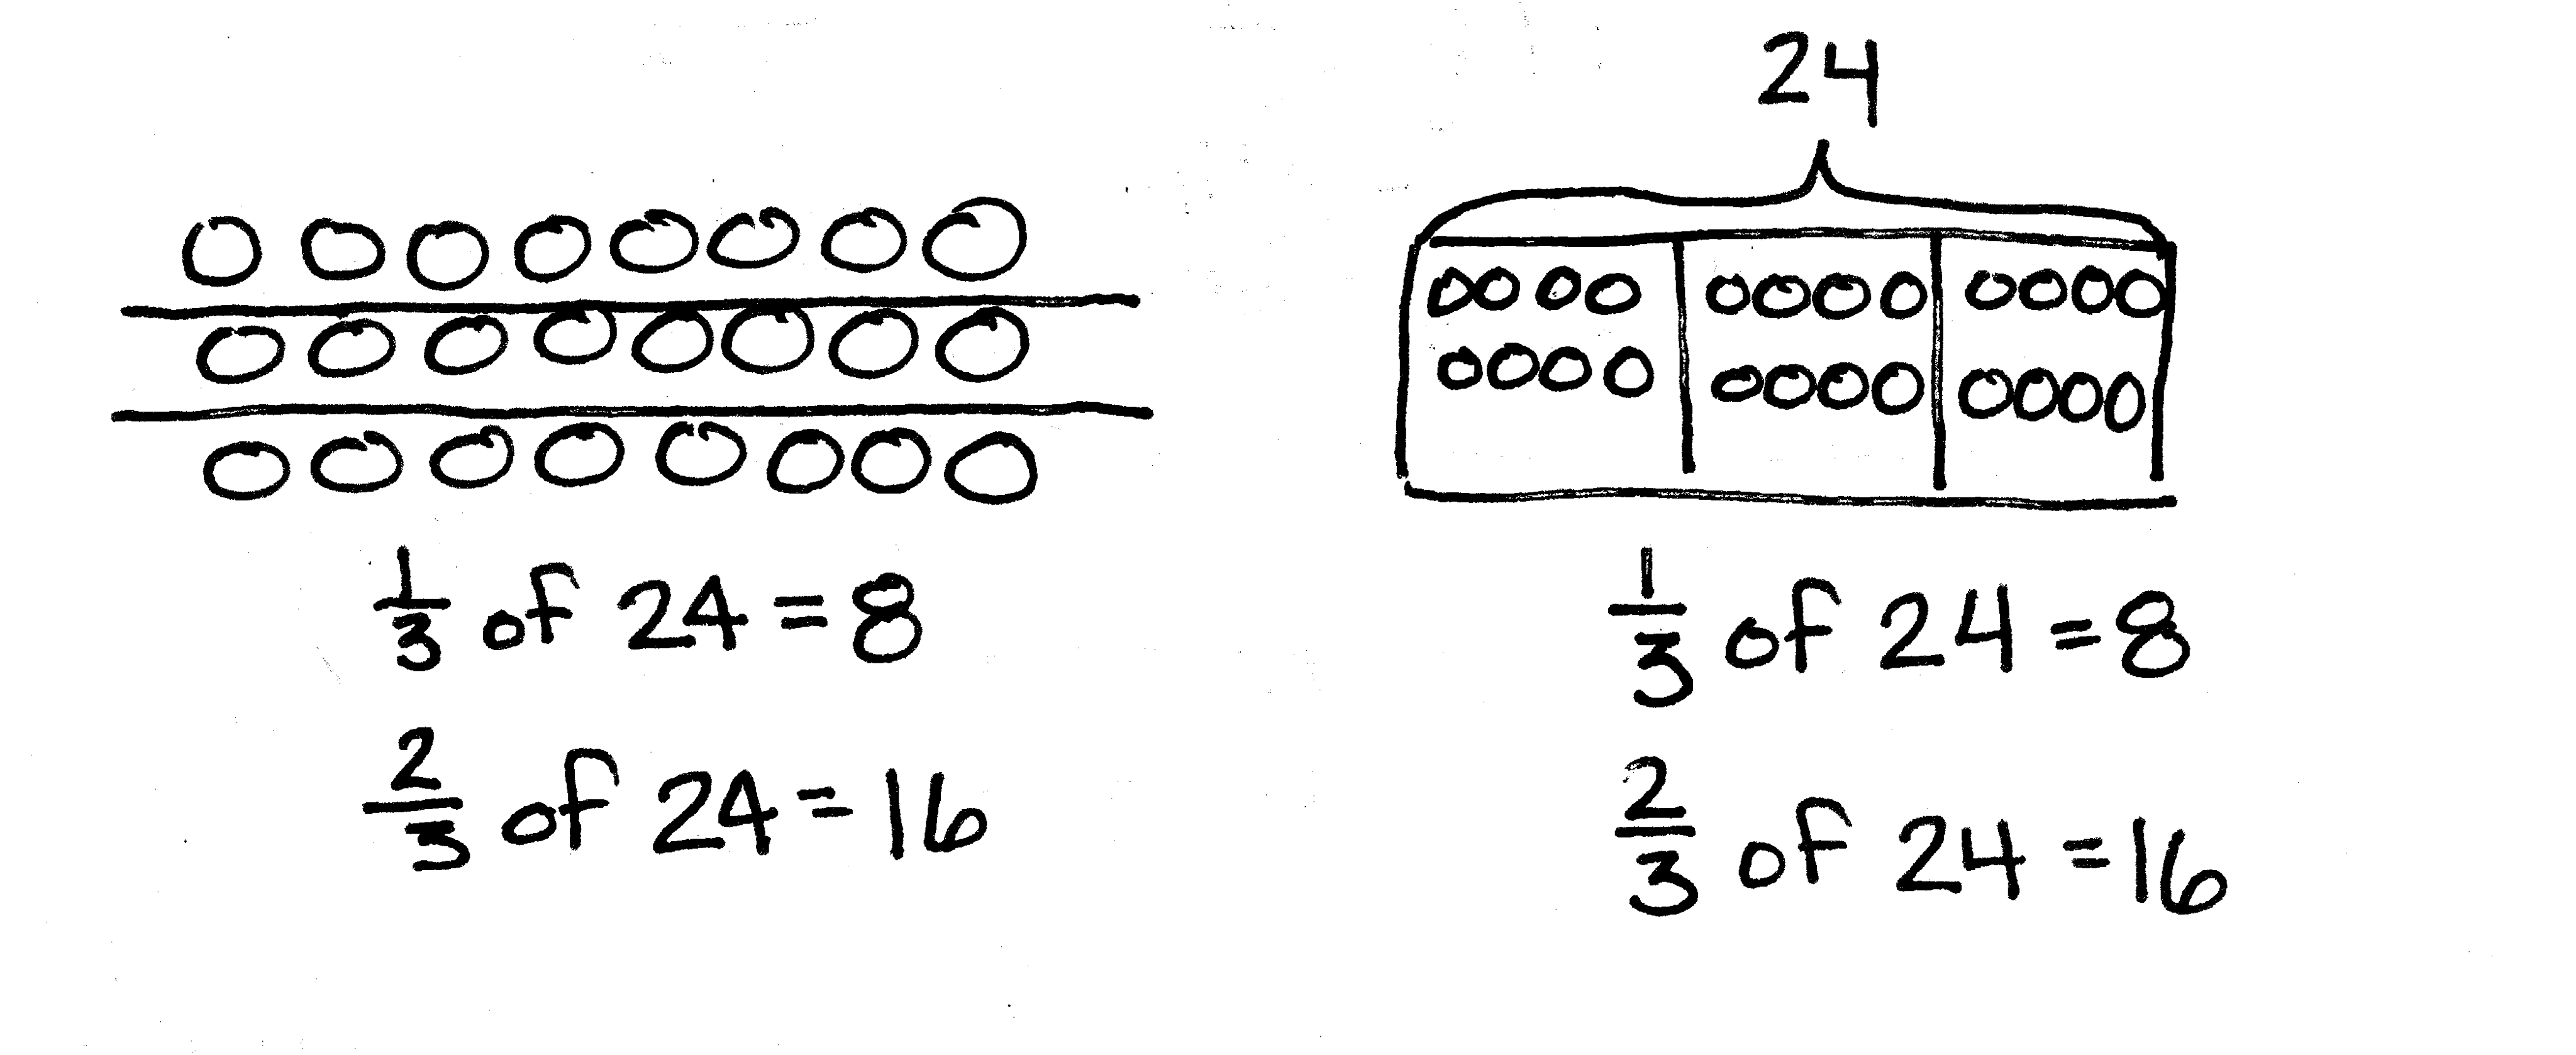 24
1/3 of 24 = 8
2/3 of 24 = 16
1/3 of 24 = 8
2/3 of 24 = 16